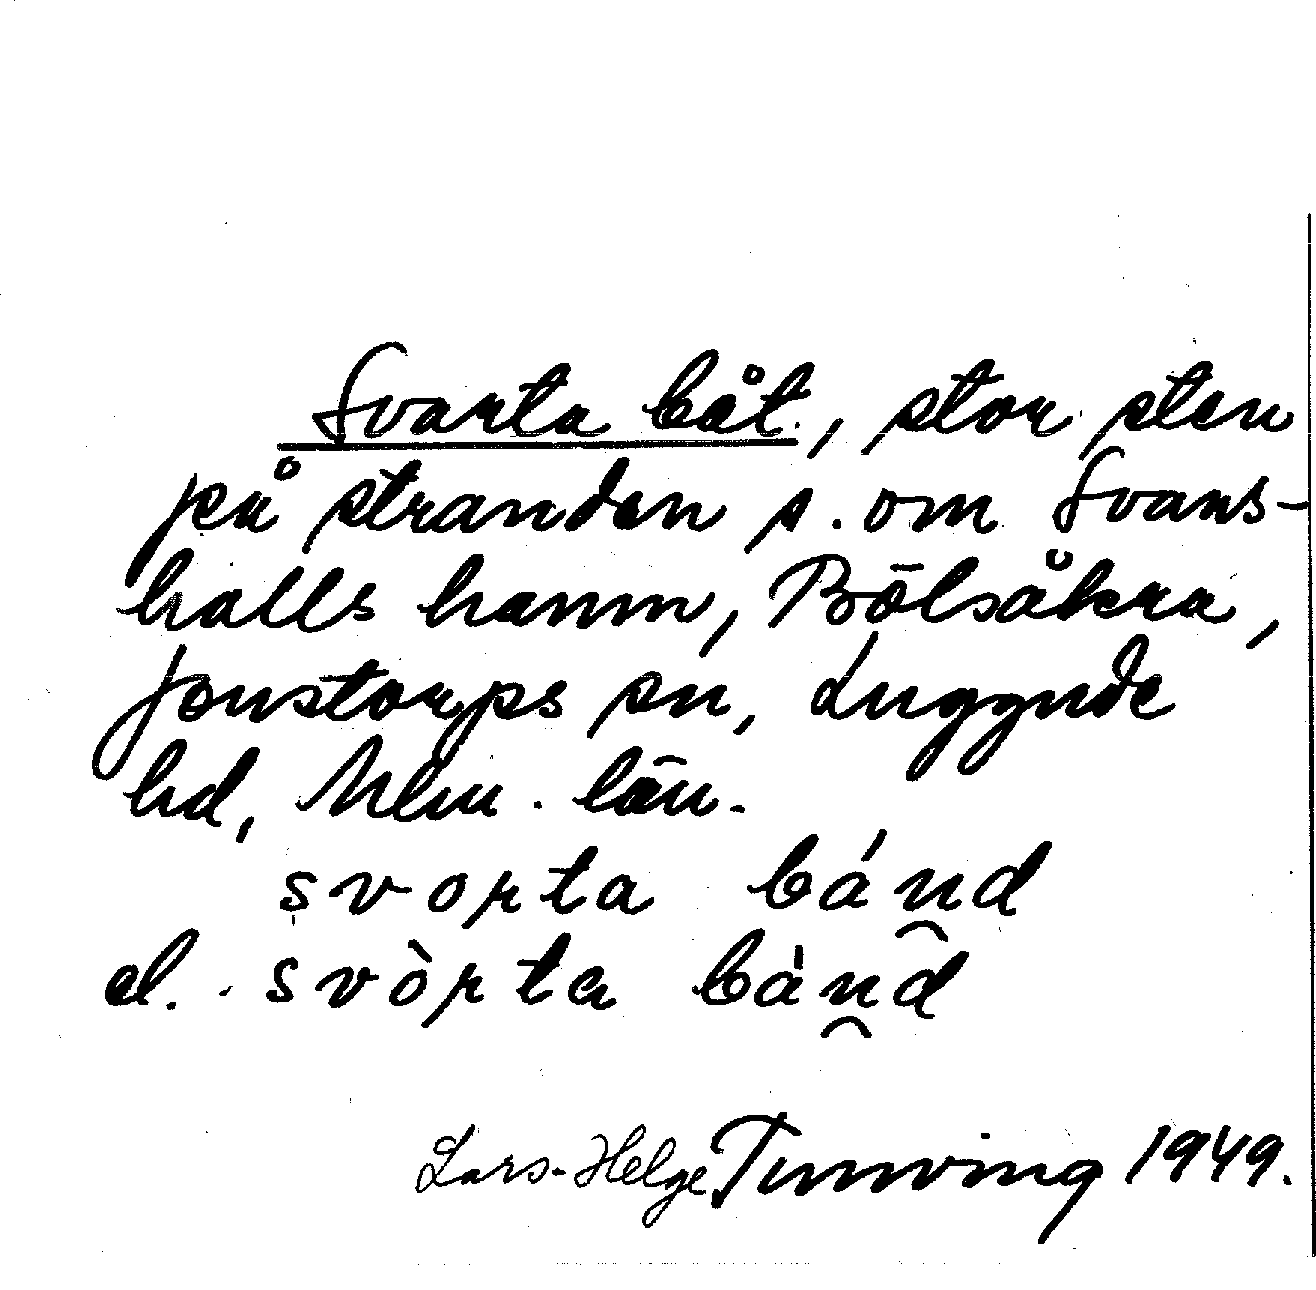 Svarta båt, stor sten
på stranden s. om Svans-
halls hamn, Bölsåkra,
Jonstorps sn, Luggude
hd, Mlm. län.
svorta bánd
el. svòrta bànd
Lars-Helge Tunving 1949.